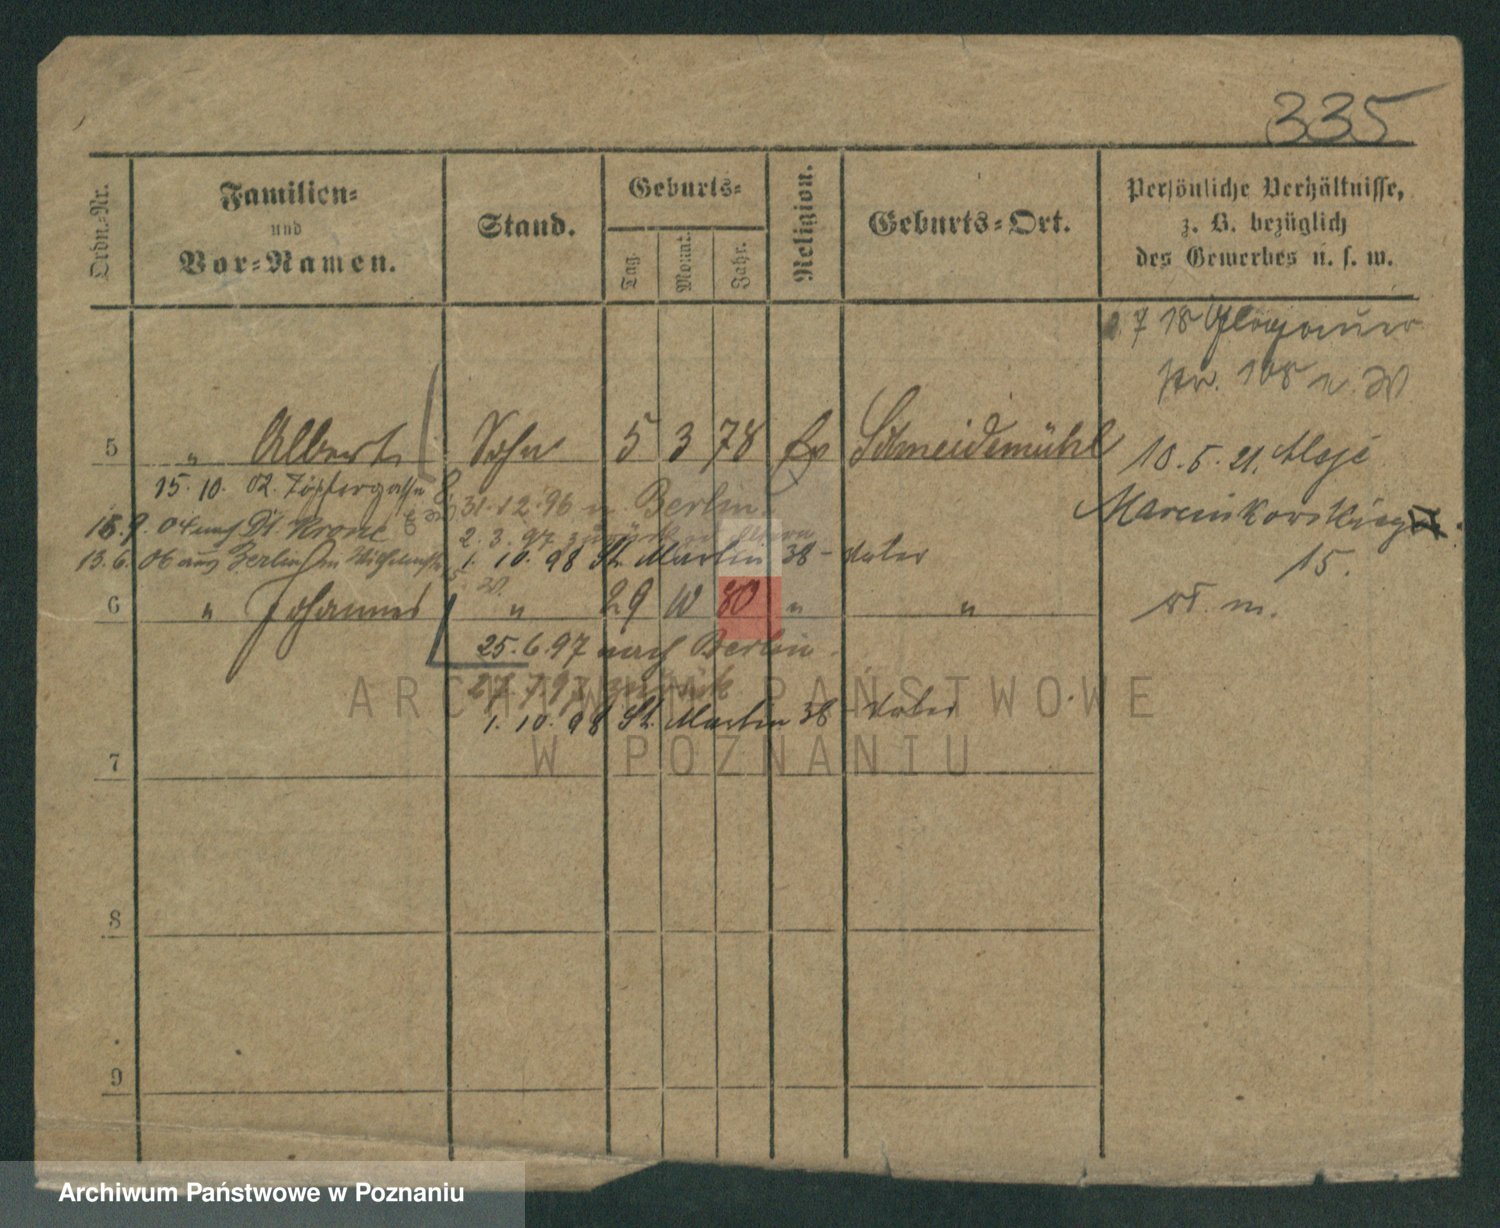 335
Ordn.-Nr.
Familien-
und
Vor-Namen.
Stand.
Geburts-
Tag.
Monat.
Jahr.
Religion.
Geburts-Ort.
Persönliche Verhältnisse,
z. B. bezüglich
des Gewerbes u. s. w.
7 18 Glogauer
str. 108
5 " Albert Sohn 5 3 78 Ev Schneidemühl
10.5.21. Aleje
Marcinkowskieg
15.
15.10. 02. Töpfergasse
31.12.96 n. Berlin
04 nach Dt Krone
2.3.97 zurück
13.6. 06 aus Berlin
1. 10. 98 St. Martin 38 - Vater
6 " Johannes " 29 10 80 " "
25.6.97 nach Berlin.
27.7.97 zurück
1. 10. 98 St. Martin 38 - Vater
7
8
9
ARCHIWUM PAŃSTWOWE
W POZNANIU
Archiwum Państwowe w Poznaniu